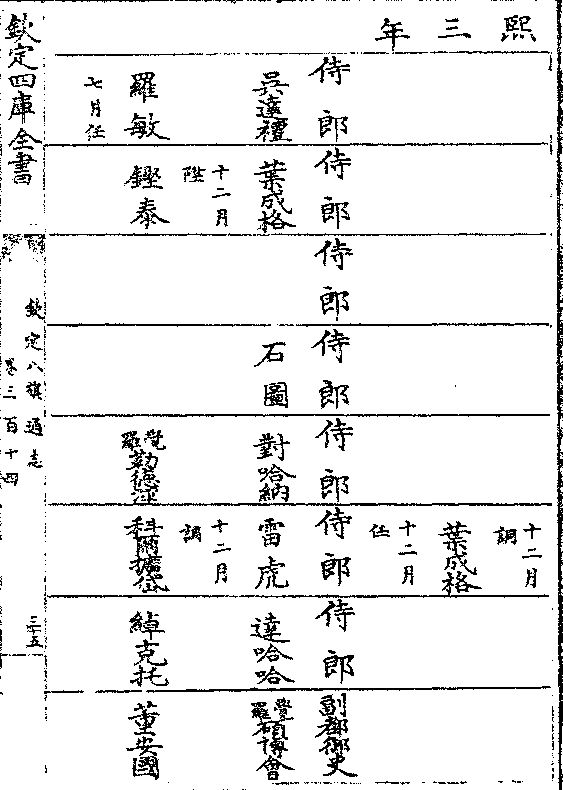 熙三年
侍郎
吳達禮
羅敏
七月任
侍郎
葉成格
十二月
陞
鏗泰
侍郎
侍郎
石圖
侍郎
對哈納
覺羅勒德洪
十二月
調
葉成格
十二月
任
侍郎
雷虎
十二月
調
科爾擴岱
侍郎
達哈哈
綽克托
副都御史
覺羅碩博會
董安國
欽定四庫全書
欽定八旗通志
卷三百十四
三五